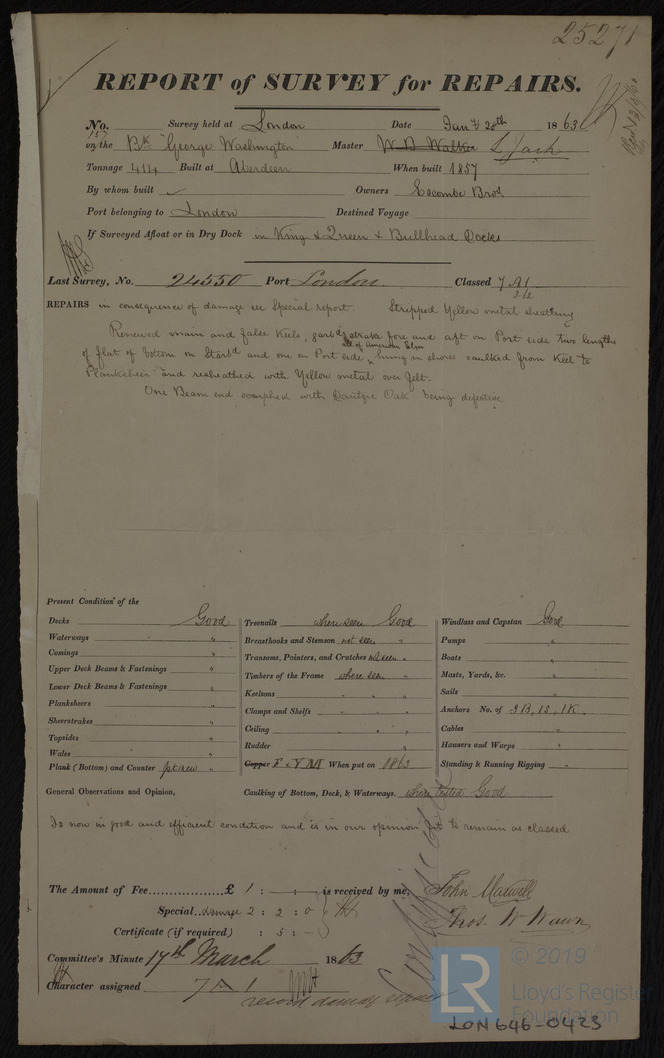 25271
REPORT of SURVEY for REPAIRS.
No. 157 Survey held at London Date Jany 28th 1863
on the Bk "George Washington" Master W B Walker L Jack
Tonnage 414 Built at Aberdeen When built 1857
By whom built ✓ Owners Escombe Bros
Port belonging to London Destined Voyage
If Surveyed Afloat or in Dry Dock in King & Queen & Bullhead Docks
Last Survey, No. 24550 Port London. Classed 7 A1
3.62
REPAIRS in consequence of damage see Special report Stripped Yellow metal sheathing
Renewed main and false Keels, garbd strake fore and aft on Port side two lengths
all of American Elm
of flat of bottom on Starbd and one on Port side, caulked from Keel to
Planksheer and resheathed with Yellow metal over felt.
One Beam end scarphed with Dantzic Oak being defective
Present Condition of the
Decks Good
Waterways "
Comings "
Upper Deck Beams & Fastenings "
Lower Deck Beams & Fastenings "
Planksheers "
Sheerstrakes "
Topsides "
Wales "
Plank (Bottom) and Counter pt new "
Treenails where seen Good
Breasthooks and Stemson not seen "
Transoms, Pointers, and Crutches not seen "
Timbers of the Frame where seen "
Keelsons " " "
Clamps and Shelfs " " "
Ceiling " " "
Rudder "
Copper F & YM When put on 1863
Windlass and Capstan Good
Pumps "
Boats "
Masts, Yards, &c. "
Sails "
Anchors No. of 3B, 1S, 1K.
Cables "
Hausers and Warps "
Standing & Running Rigging "
General Observations and Opinion, Caulking of Bottom, Deck, & Waterways. where tested Good
Is now in good and efficient condition and is in our opinion fit to remain as classed
The Amount of Fee £ 1 : — : — is received by me, John Maxwell
Special.. damage 2 : 2 : 0 Thos. W Wawn
Certificate (if required) : 5 : —
Committee's Minute 17th March 1863
Character assigned 7 A 1
record damage repairs
© 2019
LR
Lloyd's Register
Foundation
LON646-0423